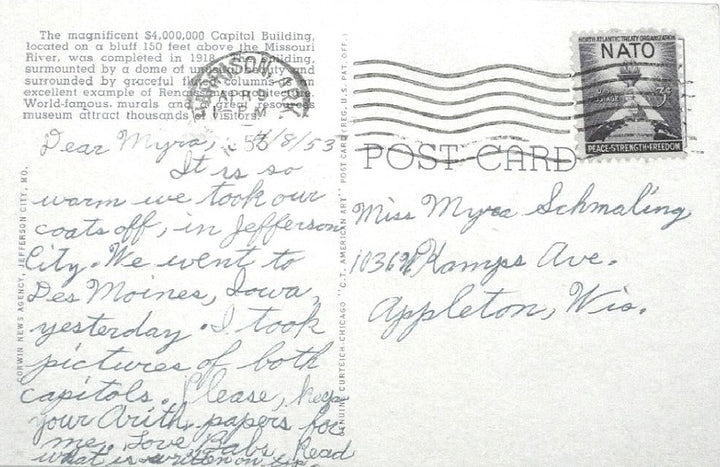 The magnificent $4,000,000 Capitol Building,
located on a bluff 150 feet above the Missouri
River, was completed in 1918. The building,
surmounted by a dome of unusual beauty and
surrounded by graceful fluted columns, is an
excellent example of Renaissance architecture.
World-famous murals and a great resources
museum attract thousands of visitors.
HARRISON, ARK
APR 9
PM
1953
NORTH ATLANTIC TREATY ORGANIZATION
NATO
3¢
PEACE-STRENGTH-FREEDOM
POST CARD
Dear Myra, 4/8/53
It is so
warm we took our
coats off, in Jefferson
City. We went to
Des Moines, Iowa,
yesterday. I took
pictures of both
capitols. Please, keep
your Arith. papers for
me. Love Babs. Read
what is written on
Miss Myra Schmaling
Kamps Ave.
Appleton, Wis.
CORWIN NEWS AGENCY, JEFFERSON CITY, MO.
GENUINE CURTEICH-CHICAGO "C.T. AMERICAN ART" POST CARD (REG. U.S. PAT. OFF.)